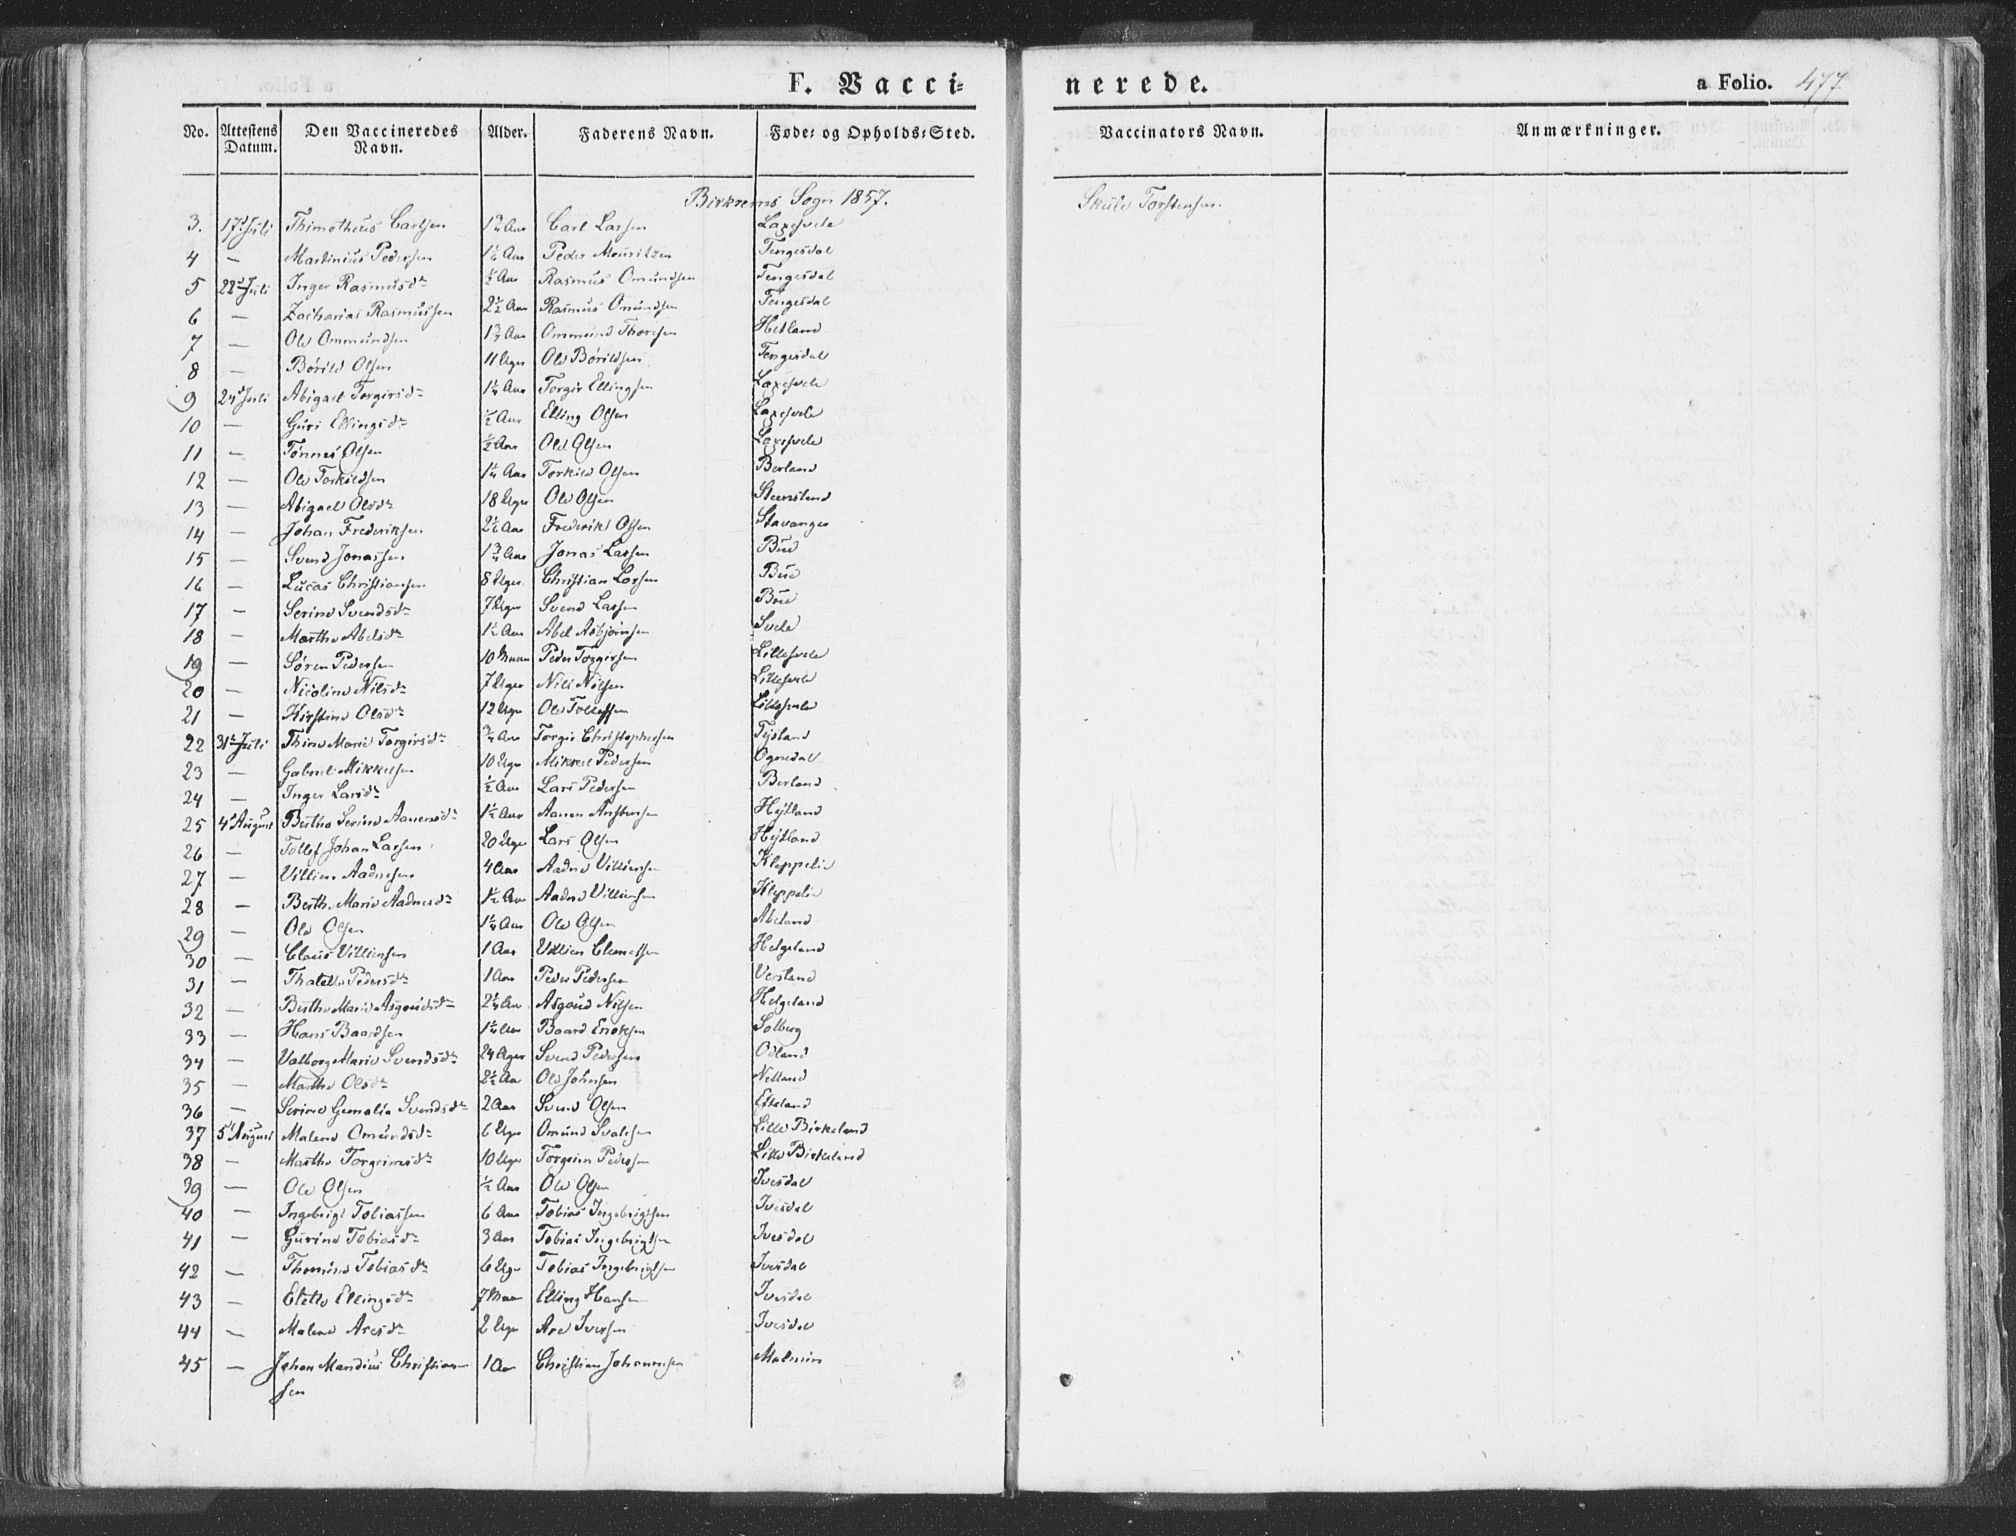 F. Vacci-
nerede.
a Folio. 477.
No. Attestens Datum. Den Vaccineredes Navn. Alder. Faderens Navn. Føde- og Opholds-Sted.
Vaccinators Navn. Anmærkninger.
Birkrems Sogn 1857.
Skule Torstensen
3. 17d Juli Thimotheus Carlsen Aar Carl Larsen Laxesvele
4 — Martinius Pedersen Aar Peder Mouritzen Tengesdal
5 22d Juli Inger Rasmusdr ½ Aar Rasmus Omundsen Tengesdal
6 — Zacharias Rasmussen 2½ Aar Rasmus Omundsen Tengesdal
7 — Ole Ommundsen Aar Ommund Thorsen Hetland
8 — Børild Olsen 11 Uger Ole Børildsen Tengesdal
9 24d Juli Abigael Torgirsdr 1¼ Aar Torgir Ellingsen Laxesvele
10 — Guri Ellingsdr ½ Aar Elling Olsen Laxesvele
11 — Tønnes Olsen ½ Aar Ole Olsen Laxesvele
12 — Ole Torkildsen 1¼ Aar Torkild Olsen Berland
13 — Abigael Olsdr 18 Uger Ole Olsen Steensland
14 — Johan Frederiksen 2½ Aar Frederik Olsen Stavanger
15 — Svend Jonassen 1¾ Aar Jonas Larsen Bue
16 — Lucas Christiansen 8 Uger Christian Larsen Bue
17 — Serine Svendsdr 7 Uger Svend Larsen Bue
18 — Marthe Abelsdr 1½ Aar Abel Asbjørnsen Svele
19 — Søren Pedersen 10 Maan Peder Torgirsen Lillesvele
20 — Nicoline Nilsdr 7 Uger Nils Nilsen Lillesvele
21 — Kirstine Olsdr 12 Uger Ole Tollefsen Lillesvele
22 31d Juli Thine Marie Torgirsdr ¾ Aar Torgir Christophersen Tjisland
23 — Gabriel Mikkelsen 10 Uger Mikkel Pedersen Ognedal
24 — Inger Larsdr ½ Aar Lars Pedersen Berland
25 4d August Berthe Serine Aanensdr 1½ Aar Aanen Anstensen Højland
26 — Tollef Johan Larsen 20 Uger Lars Olsen Højland
27 — Villien Aadnesen 4 Aar Aadne Villiensen Kleppelie
28 — Berthe Marie Aadnesdr 1½ Aar Aadne Villiensen Kleppelie
29 — Ole Olsen 1¼ Aar Ole Olsen Abeland
30 — Claus Villiensen 1 Aar Villien Clemetsen Helgeland
31 — Thalette Pedersdr 1 Aar Peder Pedersen Versland
32 — Berthe Marie Asgoudsdr 2¼ Aar Asgoud Nilsen Helgeland
33 — Hans Baardsen 1¼ Aar Baard Enoksen Solberg
34 — Valborg Marie Svendsdr 24 Uger Svend Pedersen Odland
35 — Marthe Olsdr 2½ Aar Ole Johnsen Netland
36 — Serine Gemalia Svendsdr 2 Aar Svend Olsen Efteland
37 5d August Malene Omundsdr 6 Uger Omund Svalesen Lille Birkeland
38 — Marthe Torgeirsdr 10 Uger Torgeirn Pedersen Lille Birkeland
39 — Ole Olsen ½ Aar Ole Olsen Ivesdal
40 — Ingebrigt Tobiassen 6 Aar Tobias Ingebrigtsen Ivesdal
41 — Gurine Tobiasdr 3 Aar Tobias Ingebrigtsen Ivesdal
42 — Thomine Tobiasdr 6 Uger Tobias Ingebrigtsen Ivesdal
43 — Elette Ellingsdr 7 Maan Elling Hansen Ivesdal
44 — Malene Aresdr 2 Uger Are Iversen Ivesdal
45 — Johan Mandius Christian- 1 Aar Christian Johannesen Malmin
sen